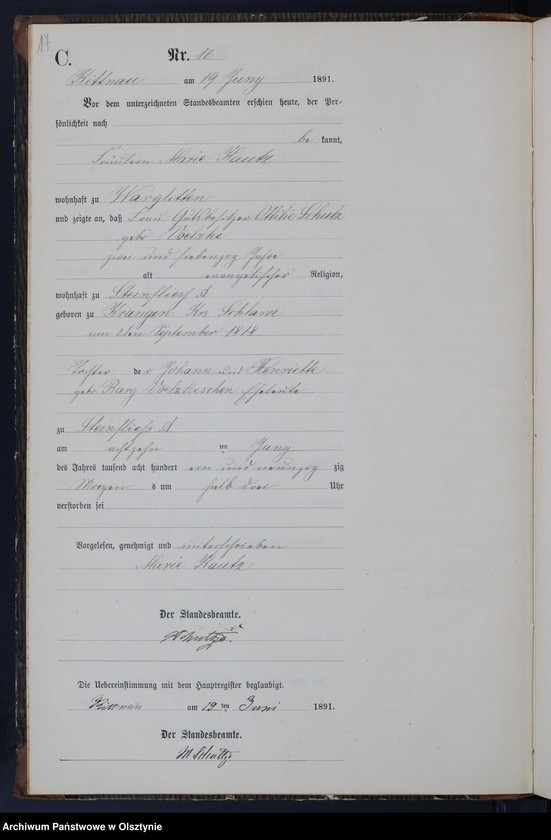 17
C.
Nr. 10
Kittnau am 19 Juny 1891.
Vor dem unterzeichneten Standesbeamten erschien heute, der Per-
sönlichkeit nach
be kannt,
Fräulein Marie Kautz
wohnhaft zu Warglitten
und zeigte an, daß Frau Gutsbesitzer Ottilie Schulz
geb Voelzke
zwei und siebenzig Jahre
alt evangelischer Religion,
wohnhaft zu Steinfliess A
geboren zu Krangen Krs Schlawe
am 2ten September 1818
Tochter der Johann und Henriette
geb Barz Voelzkeschen Eheleute
zu Steinfliess A
am achtzehn ten Juny
des Jahres tausend acht hundert ein und neunzig zig
Morgen s um halb drei Uhr
verstorben sei
Vorgelesen, genehmigt und unterschrieben
Marie Kautz
Der Standesbeamte.
Die Uebereinstimmung mit dem Hauptregister beglaubigt.
Kittnau am 19 ten Juni 1891.
Der Standesbeamte.
Archiwum Państwowe w Olsztynie